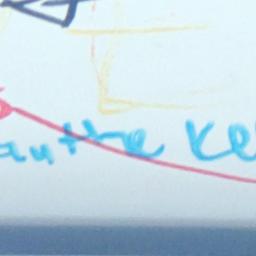 authe Ke